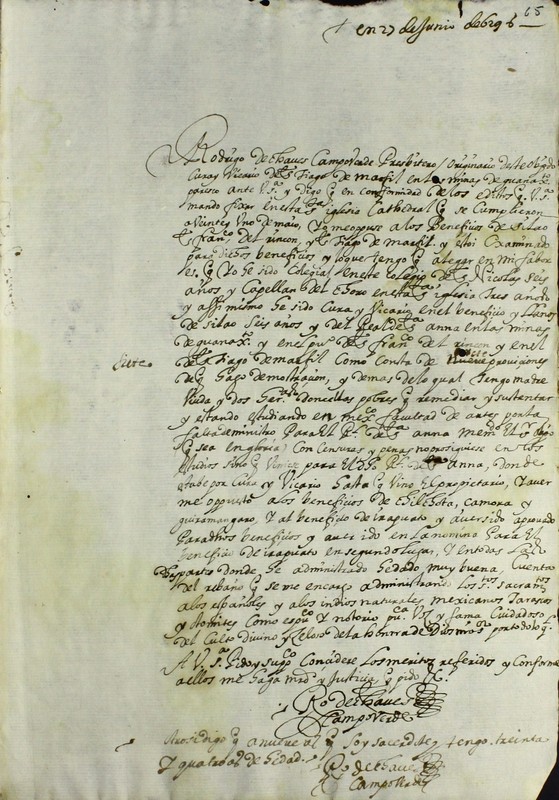 65
en 27 de Junio de 629 @
Rodrigo de chaues Campoverde Presbitero, Originario deste obispdo
Cura y Vicario de S. tiago de marfil en las minas de guanaxto
paresco ante V. Sa y Digo q en conformidad de los edittos q V. Sa
mando fixar en esta sta iglesia Cathedral q se Cumplieron
a Veinte y Vno de maio, Yo me oppuse a los Beneficios de Silao
S. franco del rincon, y S. tiago de marfil. y estoi examinado
para dichos beneficios y lo que tengo q alegar en mi fabor
es. q Yo he sido Colegial en este Colegio de S. Nicolas seis
años y Capellan del Choro en esta sta iglesia tres años
y assimismo he sido Cura y Vicario en el beneficio y llanos
de silao seis años y del Real de sta anna en las minas
de guanaxto y en el puo de S. franco del rincon y en el
siete
de S. tiago de marfil Como Consta de siete provisiones
de q hago demostracion, y demas de lo qual tengo madre
Viuda y dos hermas doncellas pobres q remediar y sustentar
y estando estudiando en mexco facultad de artes por la
falta de ministro Para el Rl de sta anna
q sea en gloria, Con Censuras y penas no prosiguiese en los
estudios sino q Viniese para el dho Rl de sta anna, donde
estube por Cura y Vicario hasta q Vino el propietario, Y auer
me oppuesto a los beneficios de camora y
guiramangaro, Y al beneficio de irapuato y auer sido aprouado
Para dhos beneficios y auer ido en la nomina Para el
beneficio de irapuato en segundo lugar, Y en todas las
partes donde he administrado he dado muy buena Cuenta
del rebaño q se me encargo administrando los stos sacramtos
a los españoles y a los indios naturales mexicanos Tarascos
y otomites Como es puco Y notorio pca Voz y fama Cuidadoso
del Culto Divino y Zeloso de la honrra de Dios nro sor por todo lo q
A V. Sa Pido y supco Considere los meritos referidos y Conforme
a ellos me haga mrd y Justicia q pido &.
Ro de chaues
Campoverde
Otro si digo q a nueue as q soy sacerdote y tengo treinta
Y quatro as de hedad.
Ro de chaues
Campoverde